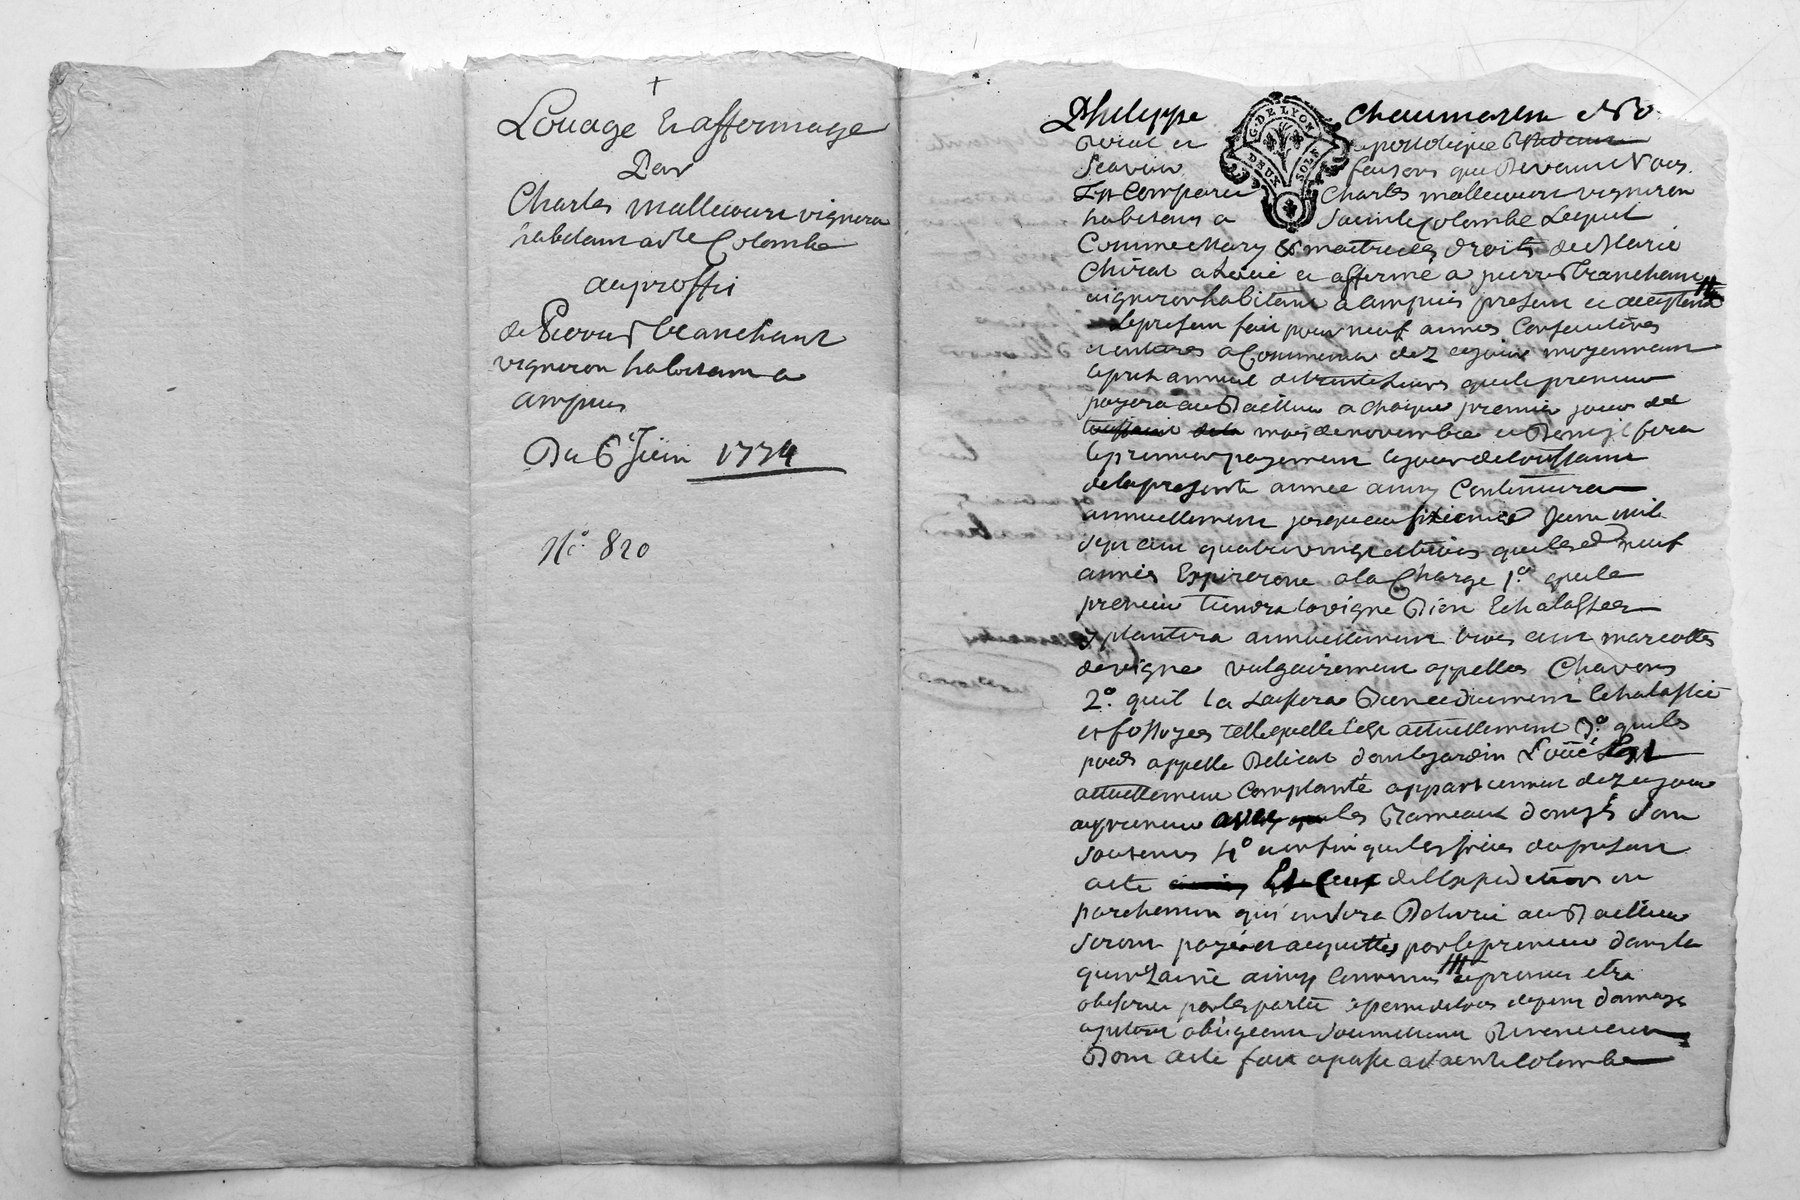 +
Louage et affermage
Par
Charles mallecourt vigneron
habitant a ste Colombe
au proffit
de Pierre tranchant
vigneron habitant a
ampuis
Du 6e Juin 1774
No. 820
Philippe Chaumartin No
Roial et apostolique
scavoir faisons que Devant Nous
Est Comparu Charles mallecourt vigneron
habitant a sainte Colombe Lequel
Comme Mary & maitre des droits de Marie
Chirat a Loüé et affermé a pierre tranchant
vigneron habitant a ampuis present et acceptant
Le present fait pour neuf années Consecutives
et entieres a Commencer dez cejour moyennant
le prix annuel de trente Livres que le preneur
payera au Bailleur a chaque premier jour
mois de novembre et Den
le premier payement le jour de toussaint
de la presente année ainsy Continuera
annuellement jusqu'au sixieme Juin mil
sept cent quatre vingt trois que lesd neuf
années Expireront a la Charge 1o que le
preneur tiendra la vigne Bien Echalassee
y plantera annuellement trois cent marcottes
de vigne vulgairement appellés Chavons
2o. qu'il la Laissera Bien et duement Echalassée
et fossoyée telle quelle l'est actuellement 3o que les
appelle Delicat dont le jardin Loüé Est
actuellement Complanté appartiennent dez ce jour
au preneur les Rameaux dont ils sont
soutenus 4o enfin que les frais du present
acte Et Ceux de l'Expedition en
parchemin qui en sera Delivré au Bailleur
seront payés et acquittés par le preneur dans la
quinzaine ainsy Convenus
observer par les parties a peine de tous depens Domages
obligeant soumettant Renonceant
Dont acte fait et passé a sainte Colombe
G. DE LYON
DEUX SOLS